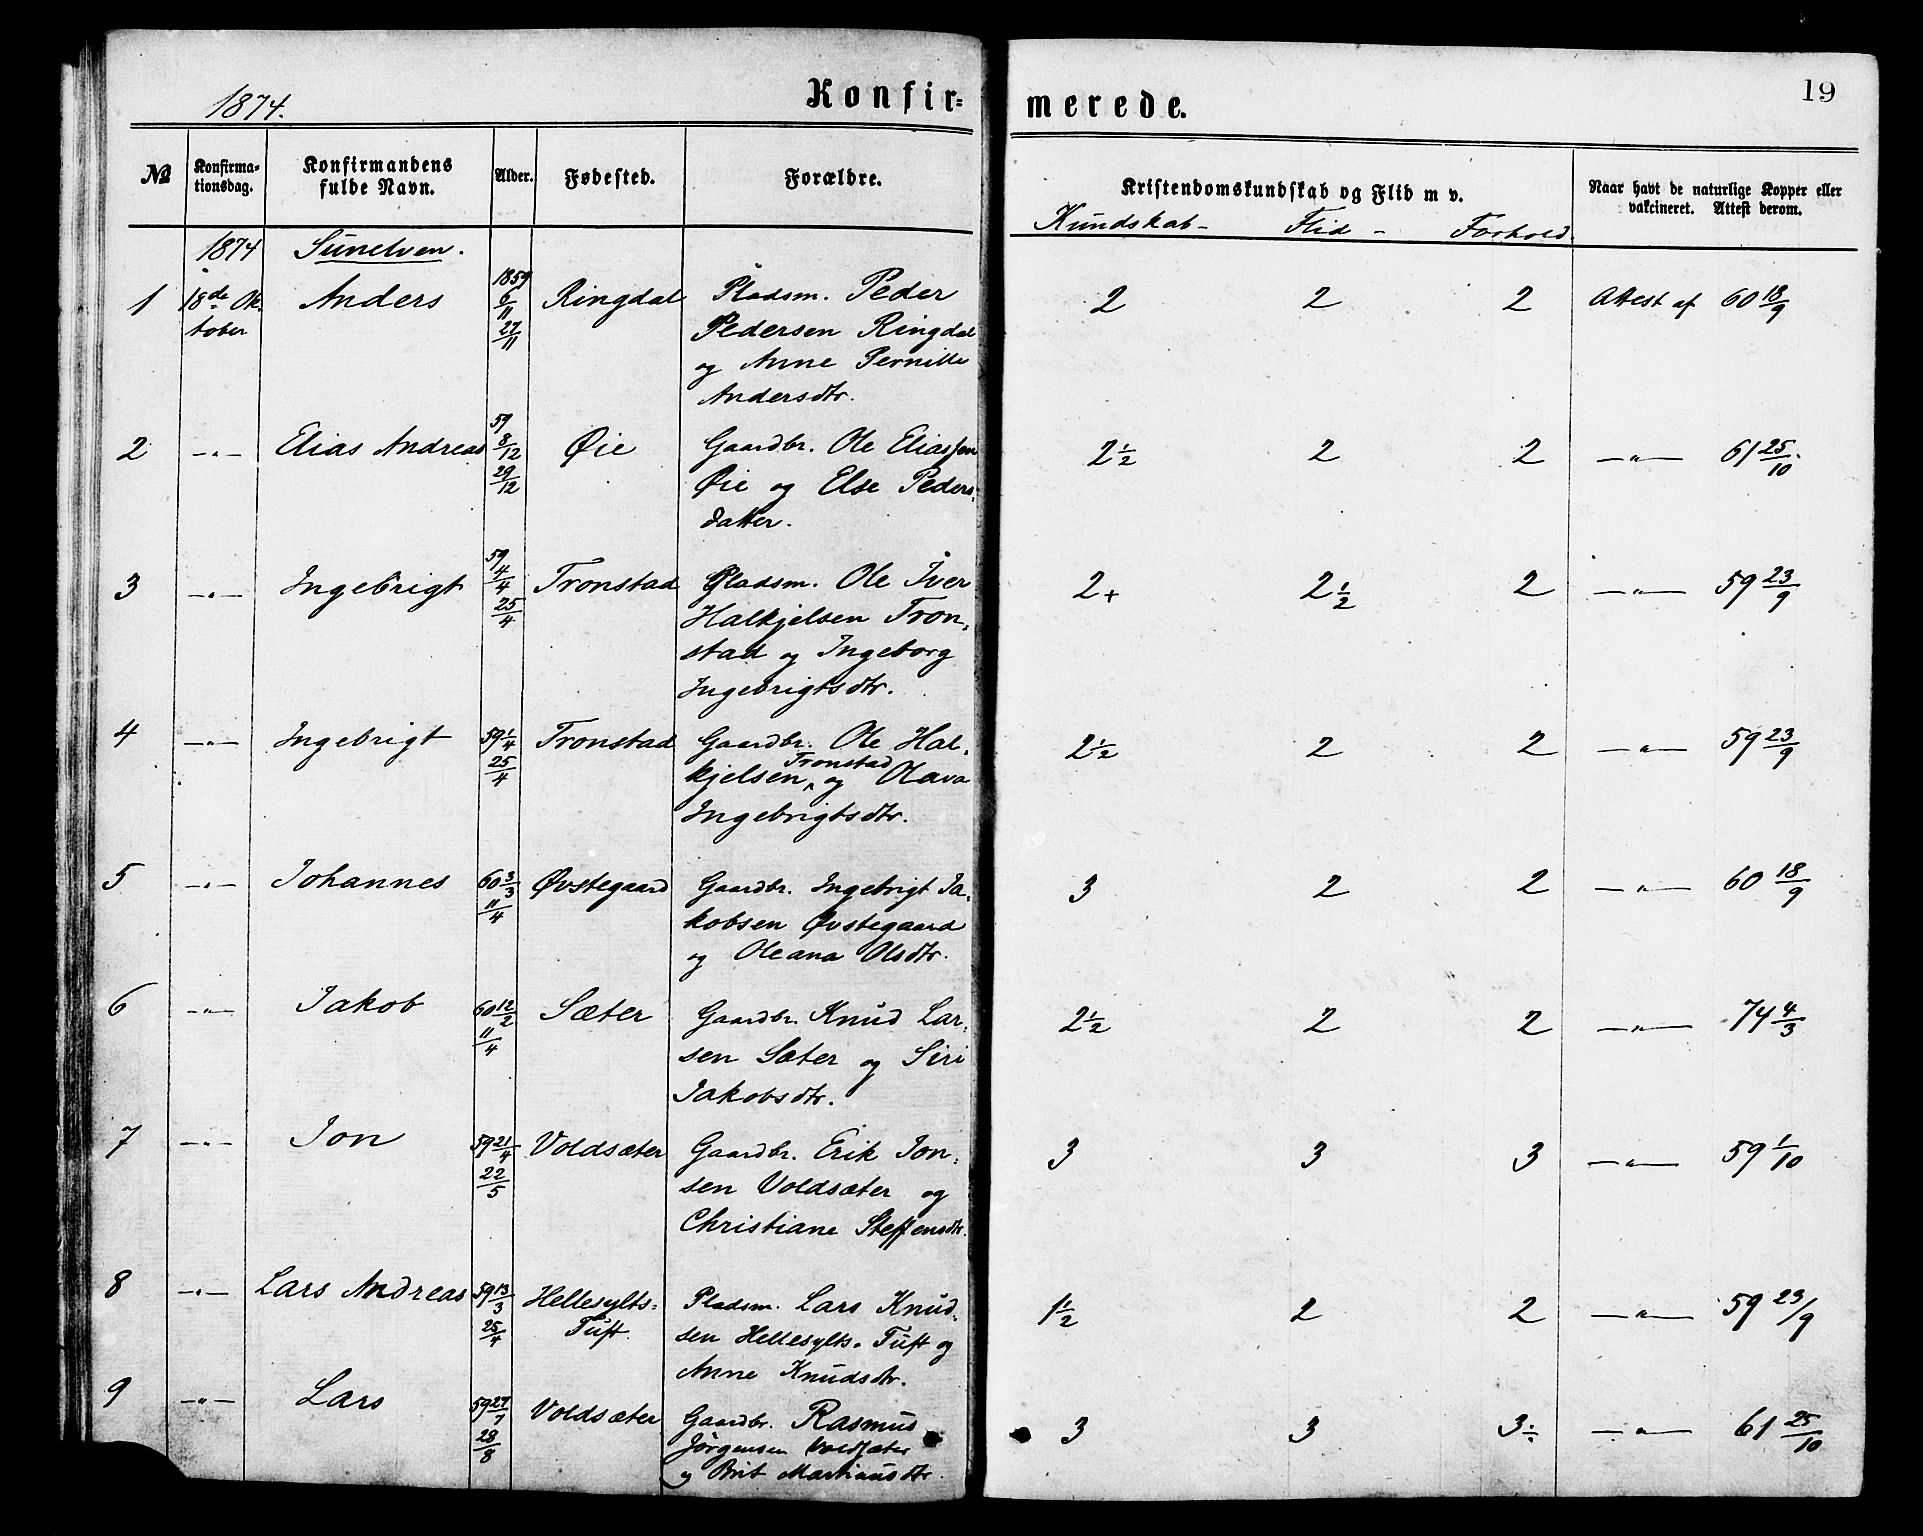 1874.
Konfir=
merede.
19
№
Konfirma-
tionsdag.
Konfirmandens
fulde Navn.
Alder.
Fødested.
Forældre.
Kristendomskundskab og Flid m v.
Naar havt de naturlige Kopper eller
vakcineret. Attest derom.
Kundskab - Flid - Forhold.
1874 Sunelven.
1 18de Ok- Anders 1859 6/11 Ringdal Pladsm. Peder 2 2 2 Attest af 60 18/9
tober 27/11 Pedersen Ringdal
og Anne Pernille
Andersdtr.
2 -"- Elias Andreas 59 8/12 Øie Gaardbr. Ole Eliassen 2½ 2 2 -"- 61 25/10.
29/12 Øie og Else Peders-
datter.
3 -"- Ingebrigt 59 4/4 Tronstad Pladsm. Ole Iver 2+ 2½ 2 -"- 59 23/9
25/4 Halkjelsen Tron-
stad og Ingeborg
Ingebrigtsdtr.
4 -"- Ingebrigt 59 1/4 Tronstad Gaardbr. Ole Hal- 2½ 2 2 -"- 59 23/9
25/4 kjelsen Tronstad og Olava
Ingebrigtsdtr.
5 -"- Johannes 60 3/3 Øvstegaard Gaardbr. Ingebrigt Ja- 3 2 2 -"- 60 18/9
11/4 kobsen Øvstegaard
og Oleana Olsdtr.
6 -"- Jakob 60 12/2 Sæter Gaardbr. Knud Lar- 2½ 2 2 -"- 74 4/3
11/4 sen Sæter og Siri
Jakobsdtr.
7 -"- Jon 59 21/4 Voldsæter Gaardbr. Erik Jon- 3 3 3 -"- 59 1/10
22/5 sen Voldsæter og
Christiane Steffensdtr.
8 -"- Lars Andreas 59 13/3 Hellesylts= Pladsm. Lars Knud- 1½ 2 2 -"- 59 23/9
25/4 Tuft. sen Hellesylts= Tuft og
Anne Knudsdtr.
9 -"- Lars 59 27/7 Voldsæter Gaardbr. Rasmus 3 3 3÷ -"- 61 25/10
28/8 Jørgensen Voldsæter
og Brit Martinusdtr.